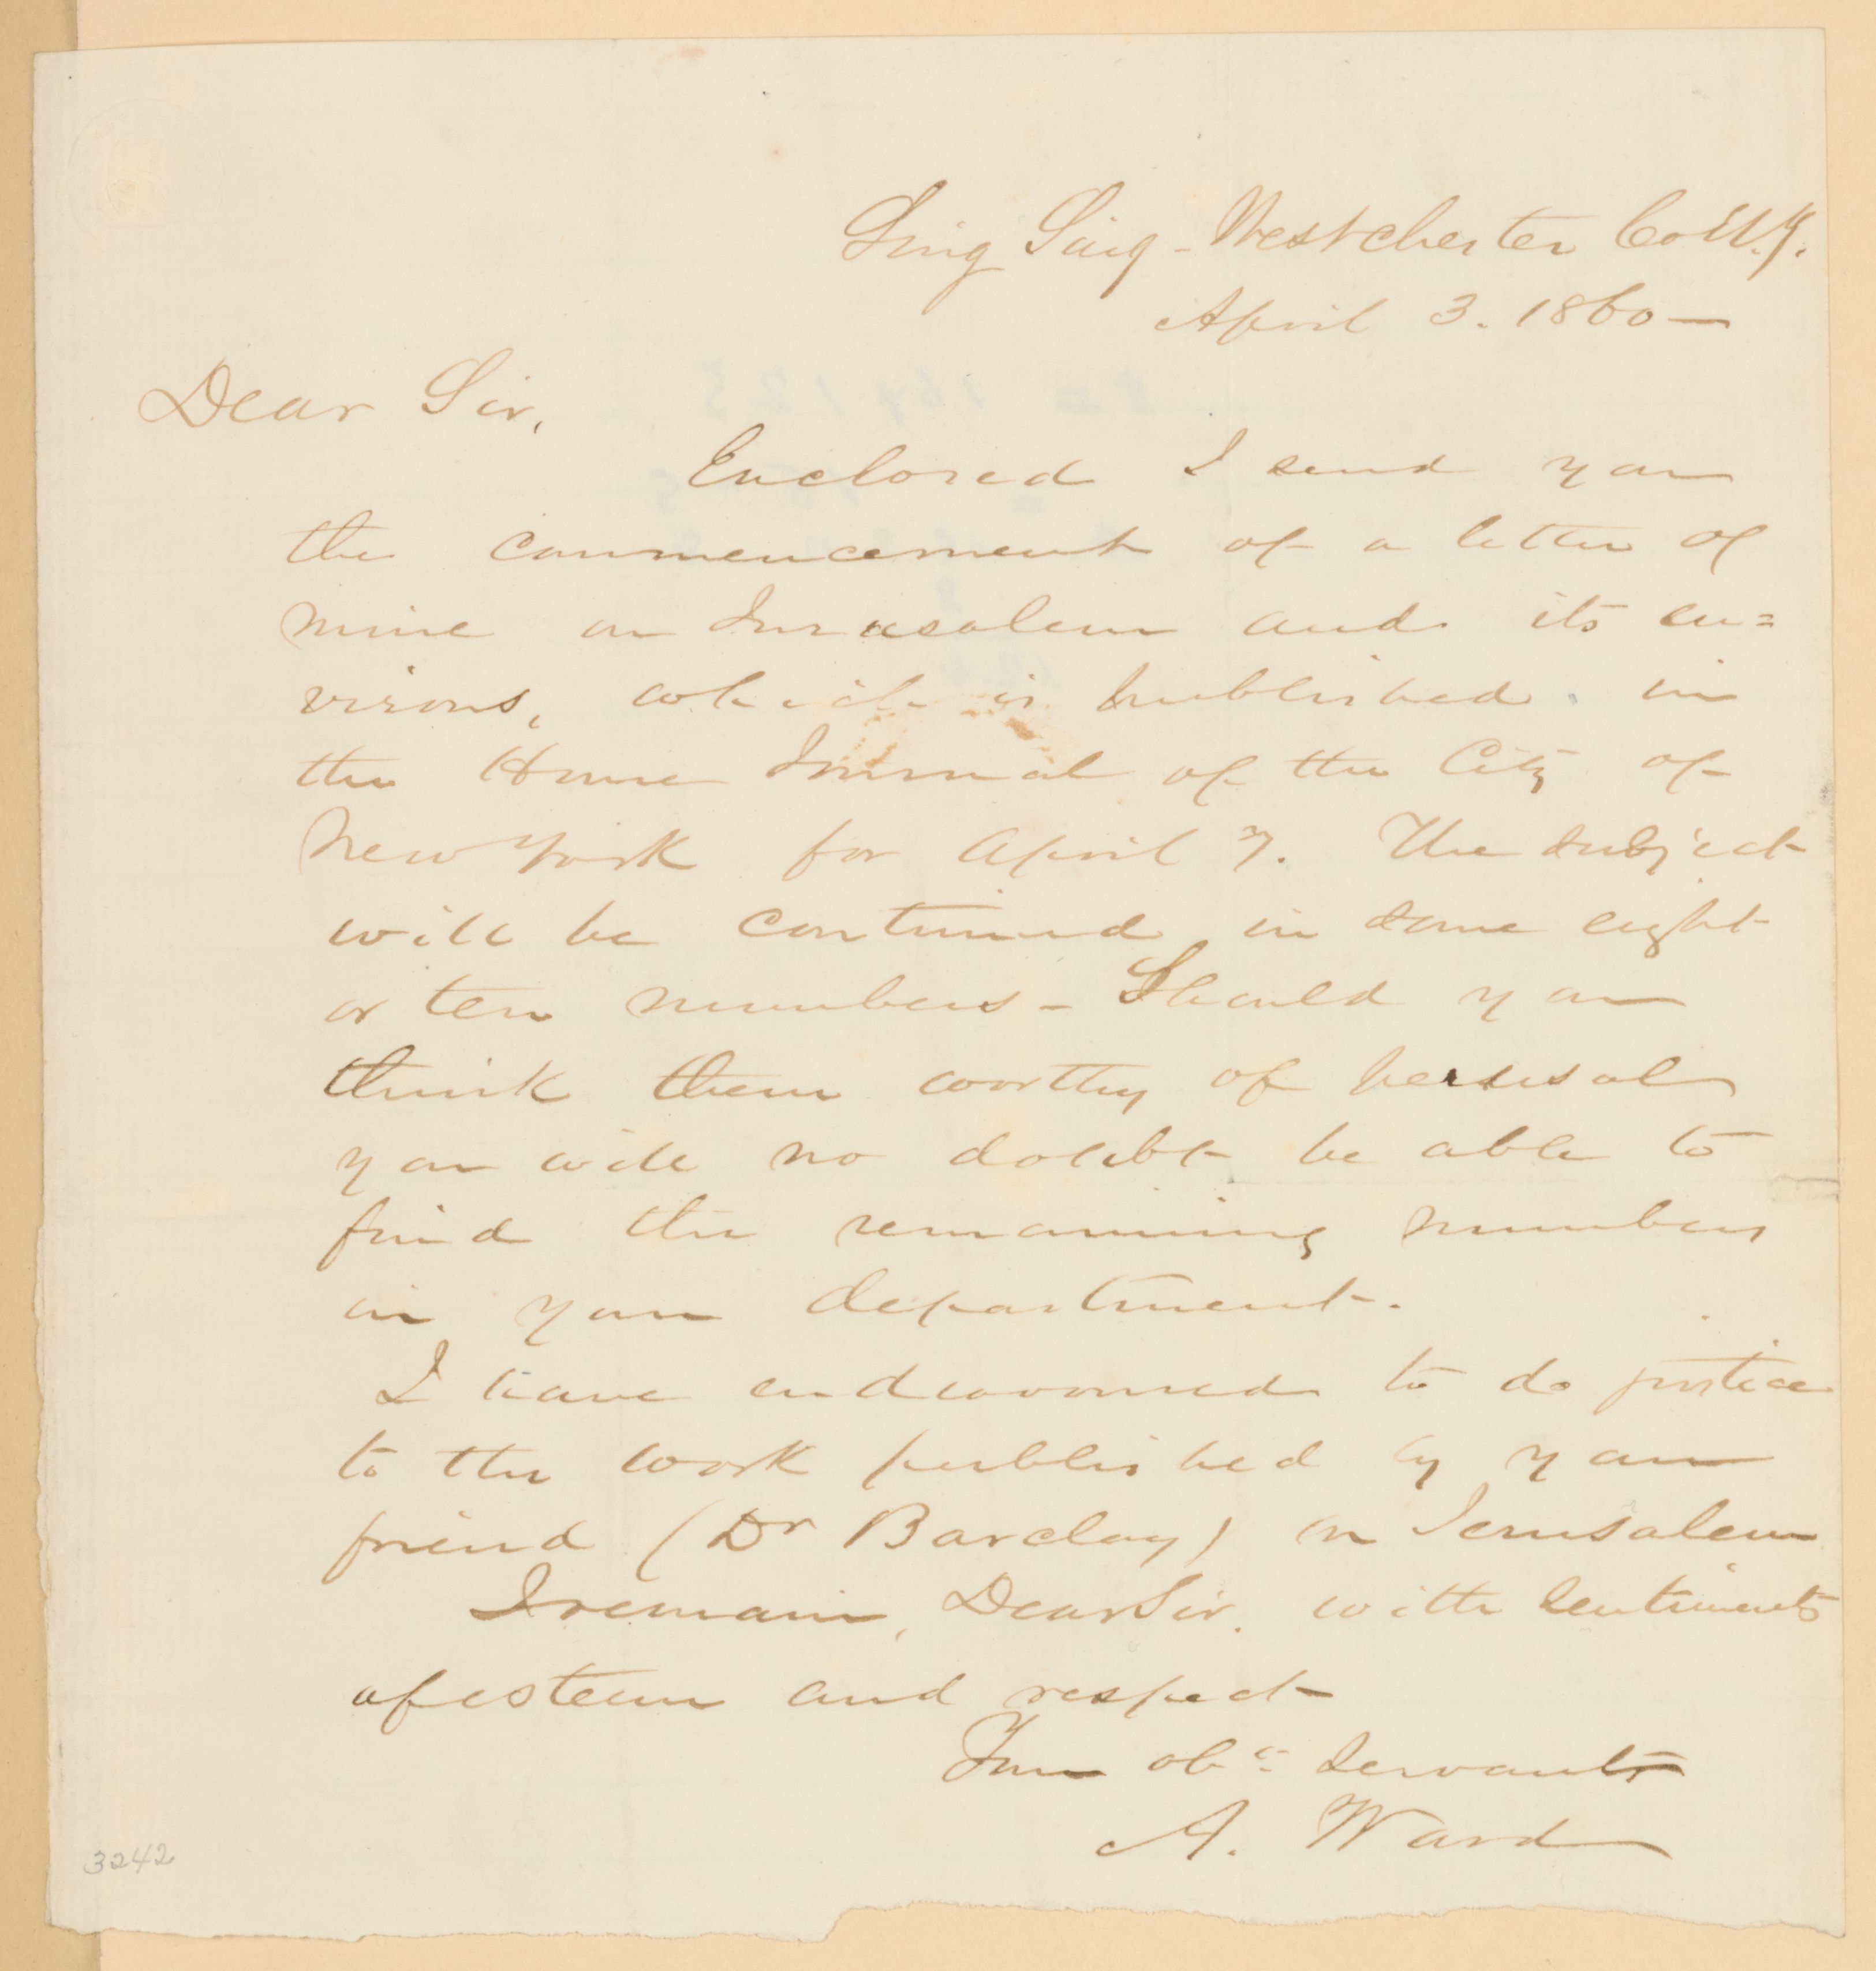 Sing Sing - Westchester Co N.Y.
April 3. 1860 —
Dear Sir,
Enclosed I send you
the commencement of a letter of
mine on Jerusalem and its en=
virons, which is published in
the Home Journal of the City of
New York for April 7. The subject
will be continued in some eight
or ten numbers - Should you
think them worthy of perusal
you will no doubt be able to
find the remaining numbers
in your department.
I have endeavoured to do justice
to the work published by your
friend (Dr Barclay) on Jerusalem
I remain, Dear Sir, with sentiments
of esteem and respect
Your obt Servant
A. Ward
3242